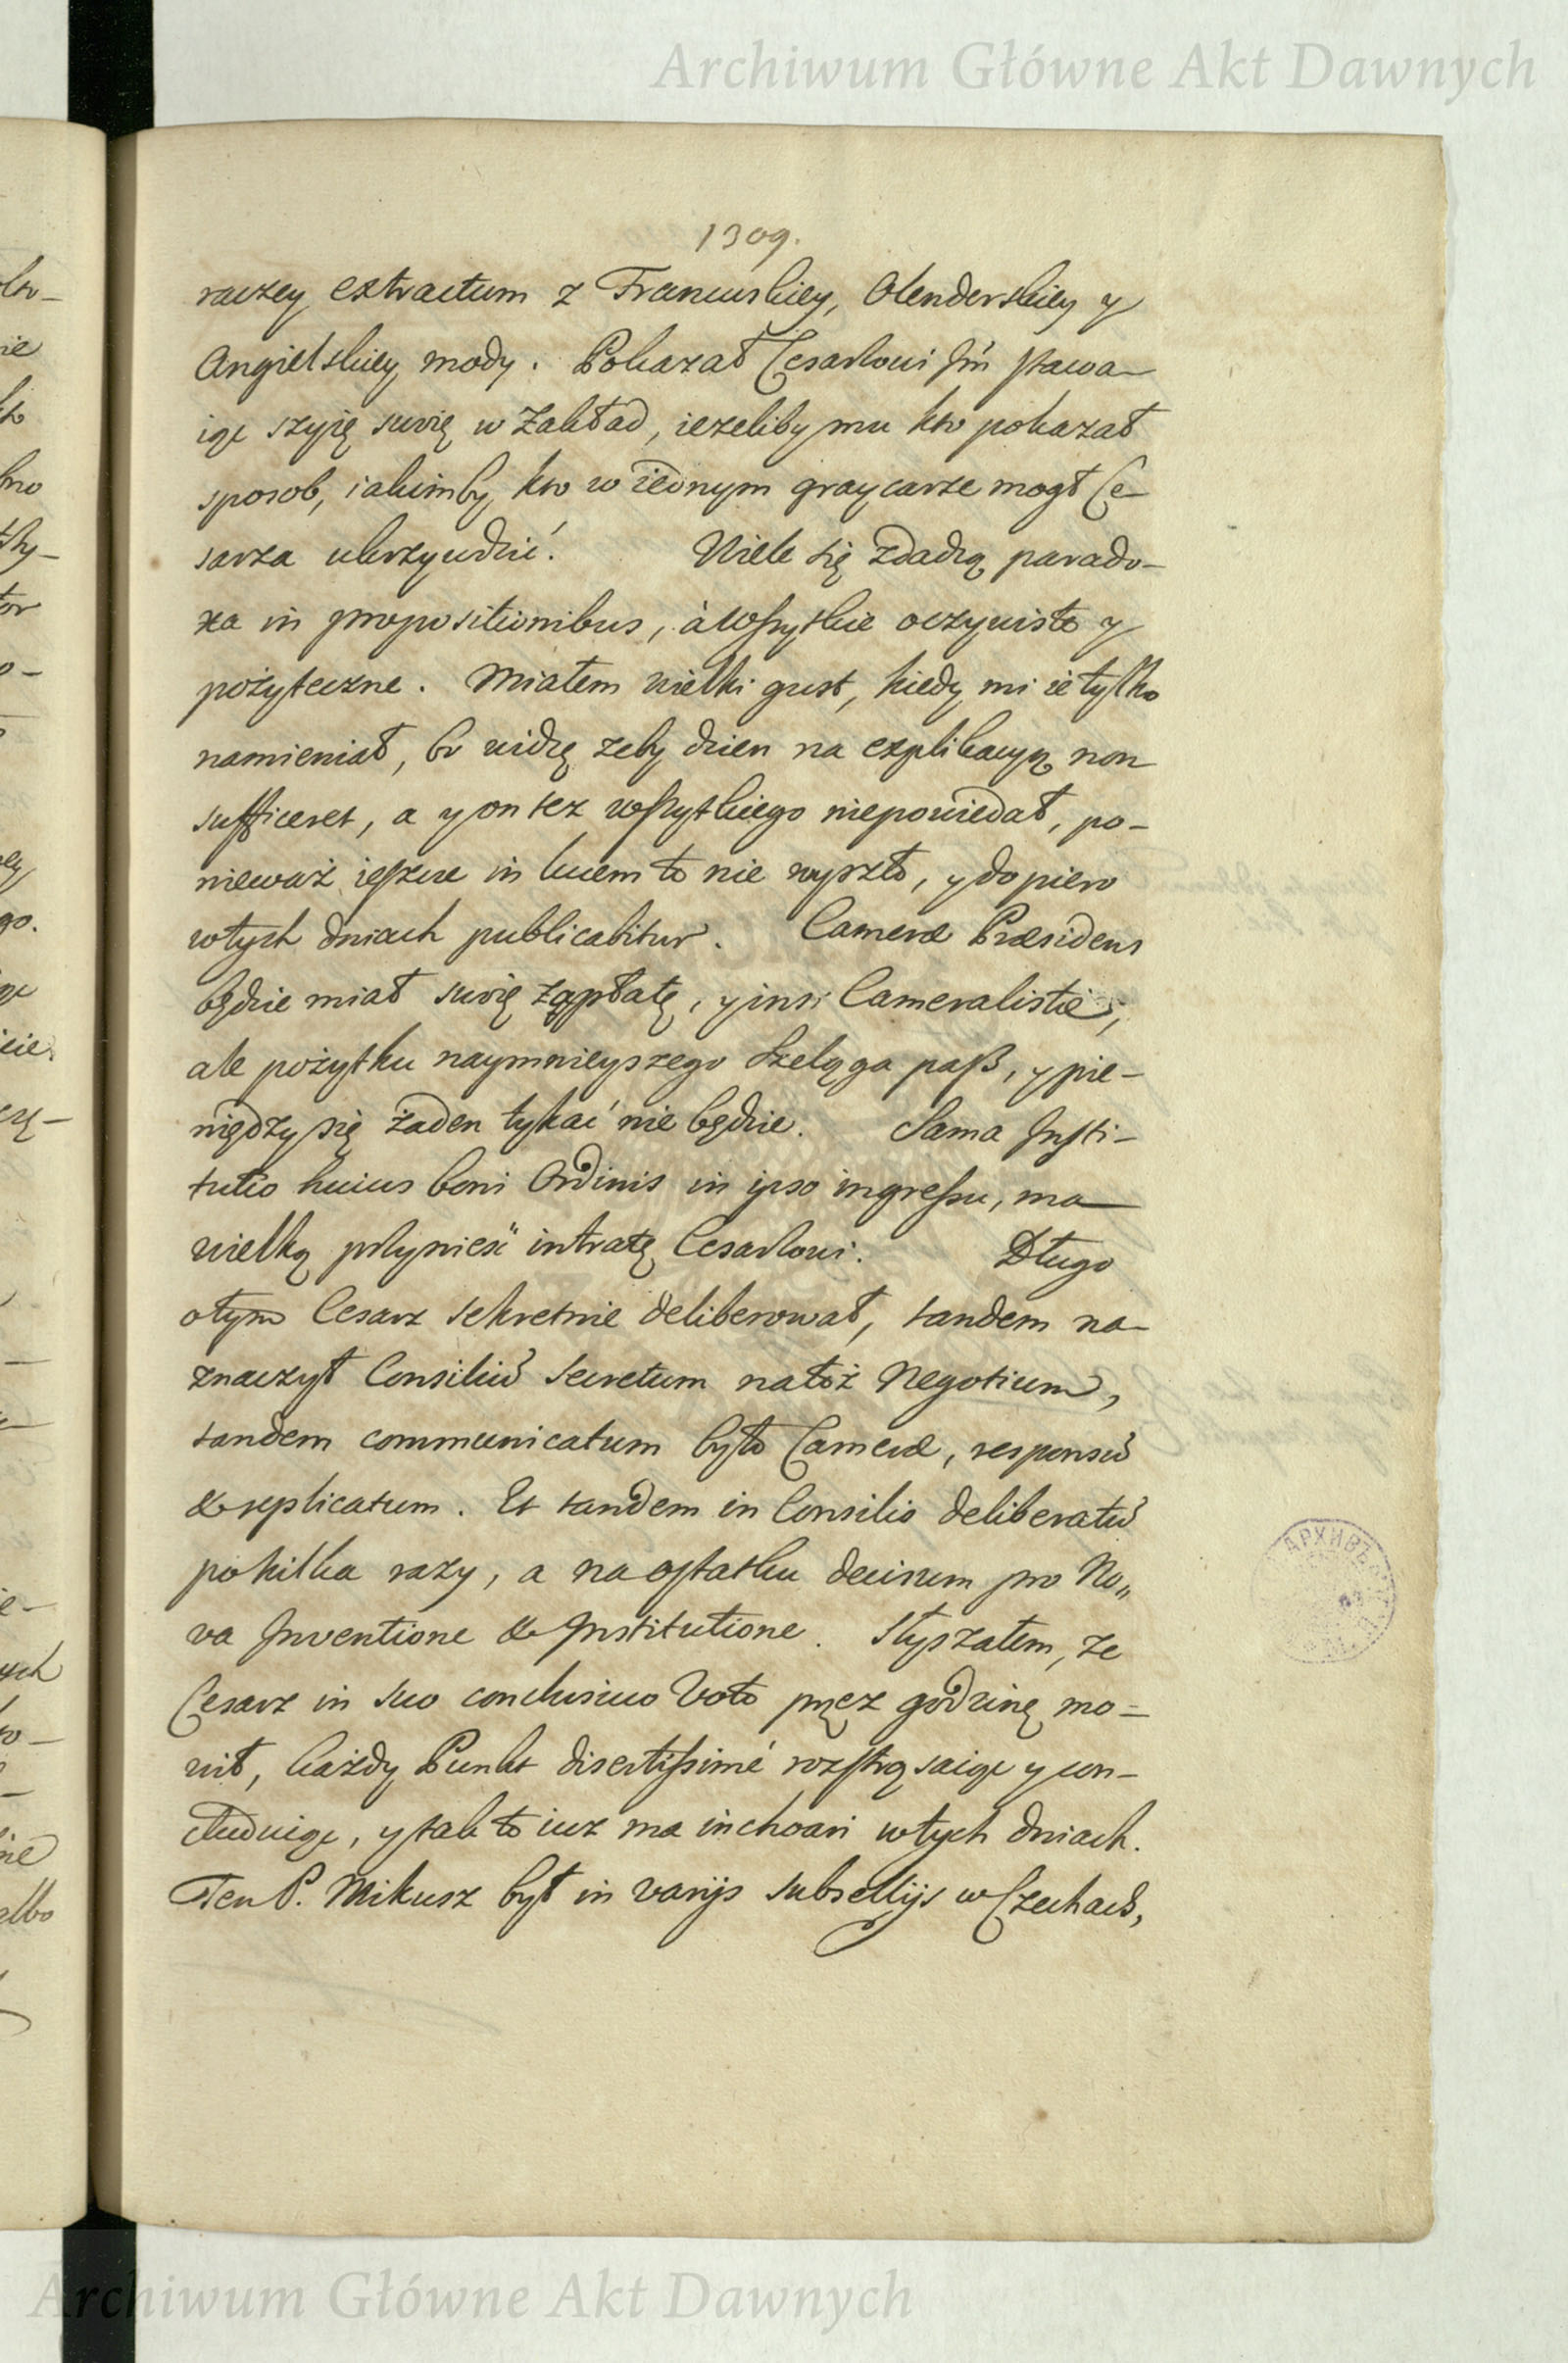 Archiwum Główne Akt Dawnych
1309.
raczey extractum z Francuskiey, Olenderskiey y
Angielskiey mody. Pokazał Cesarzowi stawa-
iąc szyię swoię w Zakład, ieżeliby mu kto pokazał
sposob, iakimby kto w iednym graycarze mogł Ce-
sarza ukrzywdzić. Wiele się zdadzą parado-
xa in propositionibus, à wszytkie oczywiste y
pożyteczne. Miałem wielki gust, kiedy mi ie tylko
namieniał, bo widzę zeby dzien na explikacyą non
sufficeret, a y on tez wszytkiego niepowiedał, po-
nieważ ieszcze in lucem to nie wyszło, y dopiero
wtych dniach publicabitur. Cameræ Præsidens
będzie miał swoię zapłatę, y insi Cameralistæ,
ale pożytku naymnieyszego Szeląga pass, y pie-
niędzy się żaden tykać nie będzie. Sama Insti-
tutio huius boni Ordinis in ipso ingressu, ma
wielką przynieść intratę Cesarzowi. Długo
otym Cesarz sekretnie deliberował, tandem na-
znaczył Consiliũ Secretum natoż Negotium,
tandem communicatum było Cameræ, responsũ
& replicatum. Et tandem in Consilio deliberatũ
po kilka razy, a na ostatku decisum pro No„
va Inventione & Institutione. Słyszałem, ze
Cesarz in suo conclusivo Voto przez godzinę mo-
wił, każdy Punkt disertissimé rozstrząsaiąc y con-
cluduiąc, y tak to iuz ma inchoari wtych dniach.
Ten P. Mikusz był in varijs subsellijs w Czechach,
АРХИВЪ
Archiwum Główne Akt Dawnych